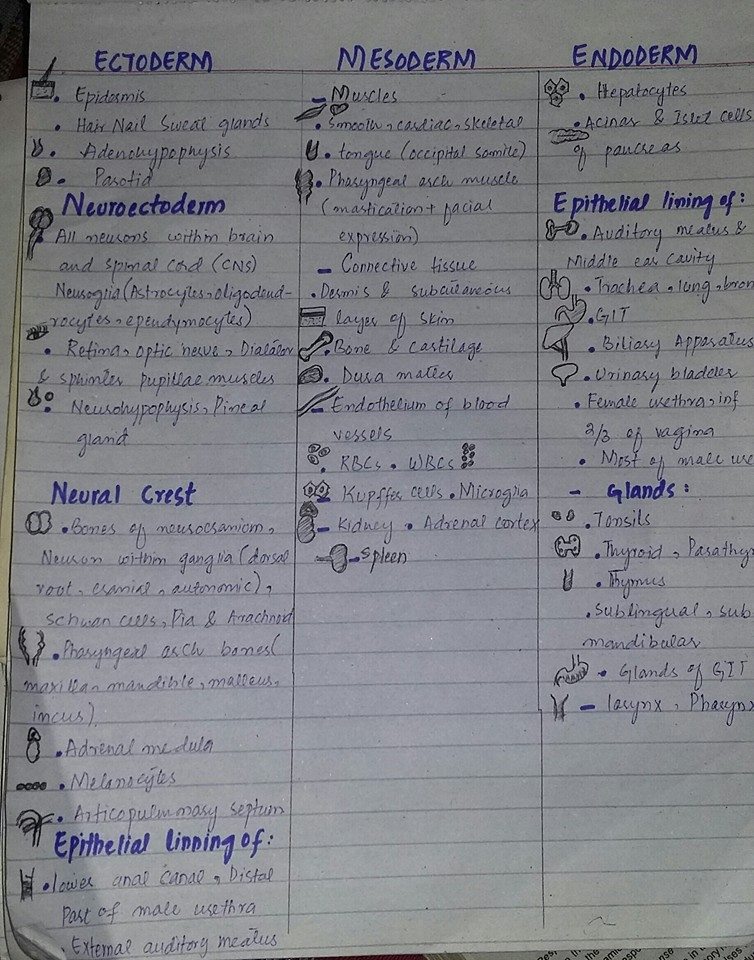 ECTODERM
• Epidermis
• Hair Nail Sweat glands
• Adenohypophysis
• Parotid
Neuroectoderm
• All neurons within brain
and spinal cord (CNS)
Neuroglia (Astrocytes, oligodend-
rocytes, ependymocytes)
• Retina, optic nerve, Dialator
& sphinter pupillae muscles
• Neurohypophysis, Pineal
gland
Neural Crest
• Bones of neurocranium,
Neuron within ganglia (dorsal
root, cranial, autonomic),
schwan cells, Pia & Arachnoid
• Pharyngeal arch bones (
maxilla, mandible, malleus,
incus).
• Adrenal medula
• Melanocytes
• Articopulmonary septum
Epithelial linning of:
• lower anal canal, Distal
Part of male urethra
• External auditory meatus
MESODERM
– Muscles
• Smooth, cardiac, skeletal
• tongue (occipital somite)
• Pharyngeal arch muscle
(mastication + facial
expression)
– Connective tissue
• Dermis & subcutaneous
layer of skin
• Bone & cartilage
• Dura mater
– Endothelium of blood
vessels
• RBCs • WBCs
– Kupffer cells • Microglia
– Kidney • Adrenal cortex
– Spleen
ENDODERM
• Hepatocytes
• Acinar & Islet cells
of pancreas
Epithelial lining of:
• Auditory meatus &
Middle ear cavity
• Trachea, lung, bron
• GIT
• Biliary Apparatus
• Urinary bladder
• Female urethra, inf
2/3 of vagina
• Most of male ure
– Glands:
• Tonsils
• Thyroid, Parathy
• Thymus
• Sublingual, sub
mandibular
• Glands of GIT
– larynx, Pharynx